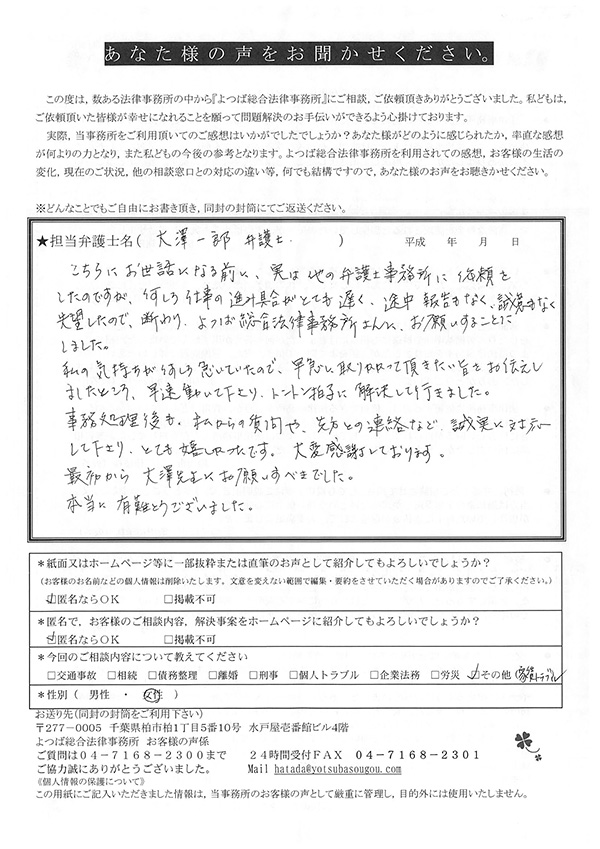 あなた様の声をお聞かせください。
この度は，数ある法律事務所の中から『よつば総合法律事務所』にご相談，ご依頼頂きありがとうございました。私どもは，
ご依頼頂いた皆様が幸せになれることを願って問題解決のお手伝いができるよう心掛けております。
実際，当事務所をご利用頂いてのご感想はいかがでしたでしょうか？あなた様がどのように感じられたか，率直な感想
が何よりの力となり，また私どもの今後の参考となります。よつば総合法律事務所を利用されての感想，お客様の生活の
変化，現在のご状況，他の相談窓口との対応の違い等，何でも結構ですので，あなた様のお声をお聴きかせください。
※どんなことでもご自由にお書き頂き，同封の封筒にてご返送ください。
★担当弁護士名( 大澤一郎 弁護士. ) 平成 年 月 日
こちらにお世話になる前に、実は他の弁護士事務所に依頼を
したのですが、何しろ仕事の進み具合がとても遅く、途中報告もなく、誠意もなく
失望したので、断わり、よつば総合法律事務所さんに、お願いすることに
しました。
私の気持ちが何しろ急いていたので、早急に取り扱って頂きたい旨をお伝えし
ましたところ、早速動いて下さり、トントン拍子に解決して行きました。
事務処理後も、私からの質問や、先方との連絡など、誠実に対応
して下さり、とても嬉しかったです。大変感謝しております。
最初から大澤先生にお願いすべきでした。
本当に有難とうございました。
＊紙面又はホームページ等に一部抜粋または直筆のお声として紹介してもよろしいでしょうか？
（お客様のお名前などの個人情報は削除いたします。文意を変えない範囲で編集・要約をさせていただく場合がありますのでご了承ください。）
☑匿名ならOK □掲載不可
＊匿名で，お客様のご相談内容，解決事案をホームページに紹介してもよろしいでしょうか？
☑匿名ならOK □掲載不可
＊今回のご相談内容について教えてください
□交通事故 □相続 □債務整理 □離婚 □刑事 □個人トラブル □企業法務 □労災 ☑その他 (家賃トラブル)
＊性別（ 男性 ・ 女性 ）
お送り先（同封の封筒をご利用下さい）
〒277－0005 千葉県柏市柏1丁目5番10号 水戸屋壱番館ビル4階
よつば総合法律事務所 お客様の声係
ご質問は04－7168－2300まで 24時間受付FAX 04－7168－2301
ご協力誠にありがとうございました。 Mail hatada@yotsubasougou.com
《個人情報の保護について》
この用紙にご記入いただきました情報は，当事務所のお客様の声として厳重に管理し，目的外には使用いたしません。